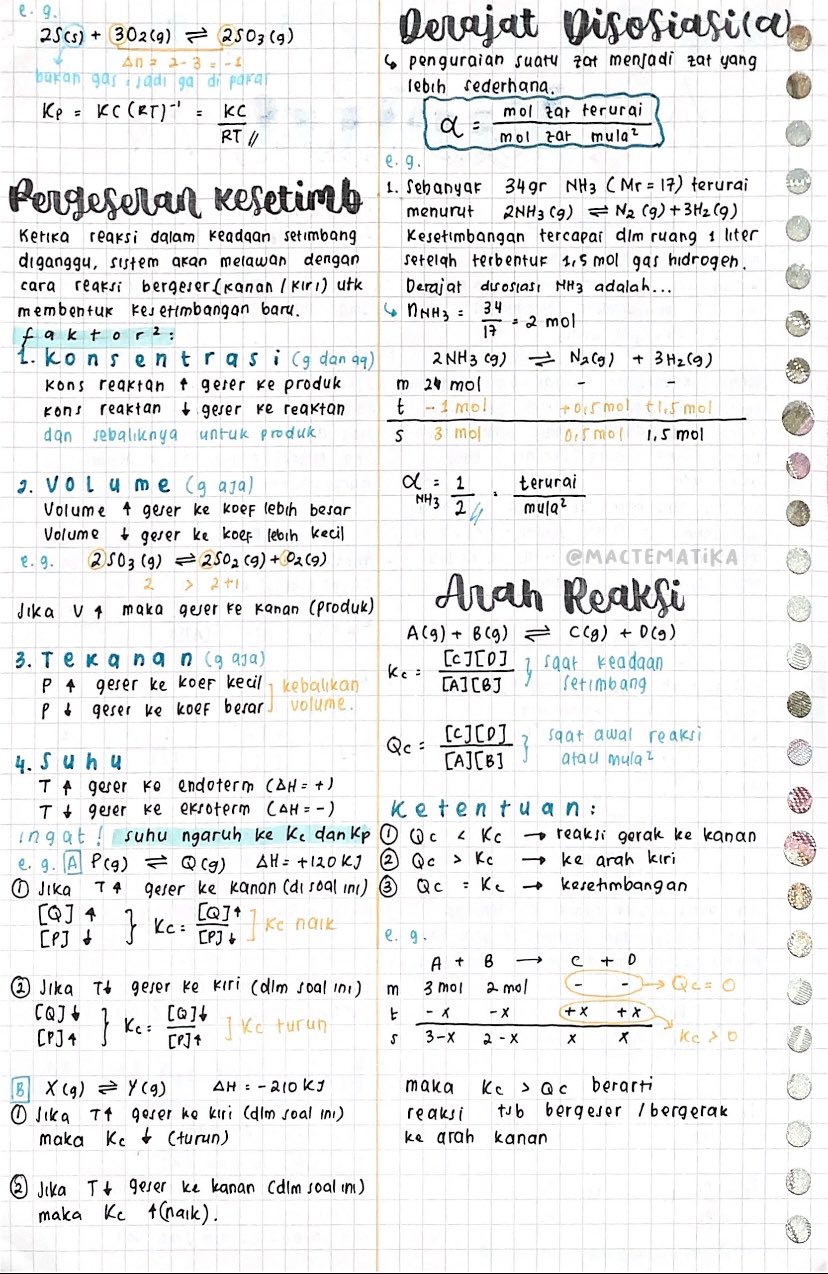 e. g.
2S(s) + 3O2(g) ⇌ 2SO3(g)
Δn = 2 - 3 = -1
bukan gas : jadi ga di pakai
Kp = KC (RT)⁻¹ = KC
RT //
Pergeseran Kesetimb
Ketika reaksi dalam keadaan setimbang
diganggu, sistem akan melawan dengan
cara reaksi bergeser (kanan / kiri) utk
membentuk kesetimbangan baru.
faktor²:
1. Konsentrasi (g dan aq)
kons reaktan ↑ geser ke produk
kons reaktan ↓ geser ke reaktan
dan sebaliknya untuk produk
2. Volume (g aja)
Volume ↑ geser ke koef lebih besar
Volume ↓ geser ke koef lebih kecil
e. g. 2SO3 (g) ⇌ 2SO2(g) + O2(g)
2 > 2+1
Jika V ↑ maka geser ke kanan (produk)
3. Tekanan (g aja)
P ↑ geser ke koef kecil
P ↓ geser ke koef besar
kebalikan
volume.
4. Suhu
T ↑ geser ke endoterm (ΔH = +)
T ↓ geser ke eksoterm (ΔH = -)
ingat! suhu ngaruh ke Kc dan Kp
e. g. A P(g) ⇌ Q(g) ΔH = +120 KJ
① Jika T↑ geser ke kanan (di soal ini)
[Q] ↑
[P] ↓
} Kc = [Q]↑
[P]↓
] Kc naik
② Jika T↓ geser ke kiri (dlm soal ini)
[Q]↓
[P]↑
} Kc = [Q]↓
[P]↑
] Kc turun
B X(g) ⇌ Y(g) ΔH = -210 KJ
① Jika T↑ geser ke kiri (dlm soal ini)
maka Kc ↓ (turun)
② Jika T↓ geser ke kanan (dlm soal ini)
maka Kc ↑(naik).
Derajat Disosiasi(α)
↳ penguraian suatu zat menjadi zat yang
lebih sederhana.
α = mol zat terurai
mol zat mula²
e. g.
1. Sebanyak 34gr NH3 (Mr = 17) terurai
menurut 2NH3(g) ⇌ N2(g) + 3H2(g)
Kesetimbangan tercapai dlm ruang 1 liter
setelah terbentuk 1,5 mol gas hidrogen.
Derajat disosiasi NH3 adalah...
↳ nNH3 = 34
17
= 2 mol
2NH3(g) ⇌ N2(g) + 3H2(g)
m 2 mol - -
t -1 mol +0,5 mol +1,5 mol
s 3 mol 0,5 mol 1,5 mol
α NH3 = 1
2 //
. terurai
mula²
@MACTEMATIKA
Arah Reaksi
A(g) + B(g) ⇌ C(g) + D(g)
Kc = [C][D]
[A][B]
} saat keadaan
setimbang
Qc = [C][D]
[A][B]
} saat awal reaksi
atau mula²
Ketentuan:
① Qc < Kc → reaksi gerak ke kanan
② Qc > Kc → ke arah kiri
③ Qc = Kc → kesetimbangan
e. g.
A + B → C + D
m 3 mol 2 mol - - → Qc = 0
t -x -x +x +x
s 3-x 2-x x x Kc > 0
maka Kc > Qc berarti
reaksi tsb bergeser / bergerak
ke arah kanan